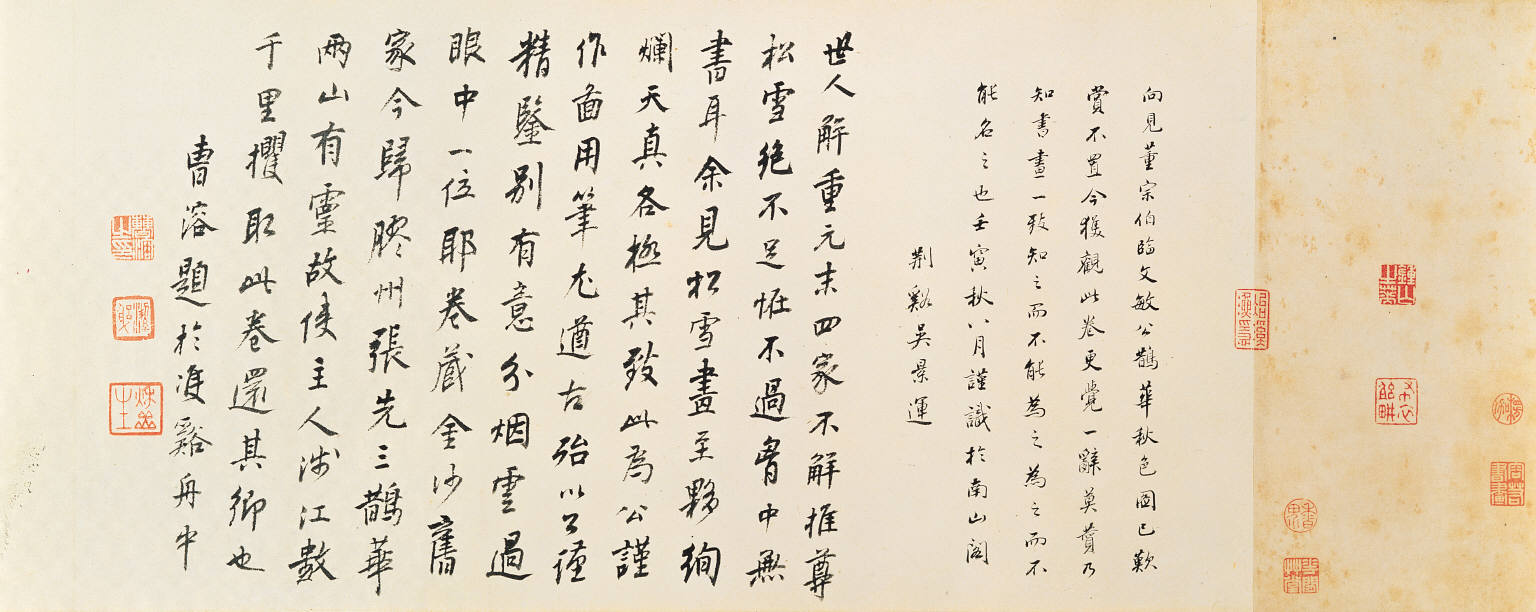 向見董宗伯臨文敏公鵲華秋色圖已歎
賞不置今獲觀此卷更覺一辭莫贊乃
知書畫一致知之而不能為之為之而不
能名之也壬寅秋八月謹識於南山閣
荆谿吳景運
世人解重元末四家不解推尊
松雪絶不足恠不過胷中無
書耳余見松雪畫至夥絢
爛天真各極其致此為公謹
作啚用筆尤遒古殆以公謹
精鑒別有意分烟雲過
眼中一位耶卷蔵金沙舊
家今歸膠州張先三鵲華
兩山有靈故使主人涉江數
千里攫取此卷還其鄉也
曹溶題於䨇谿舟中